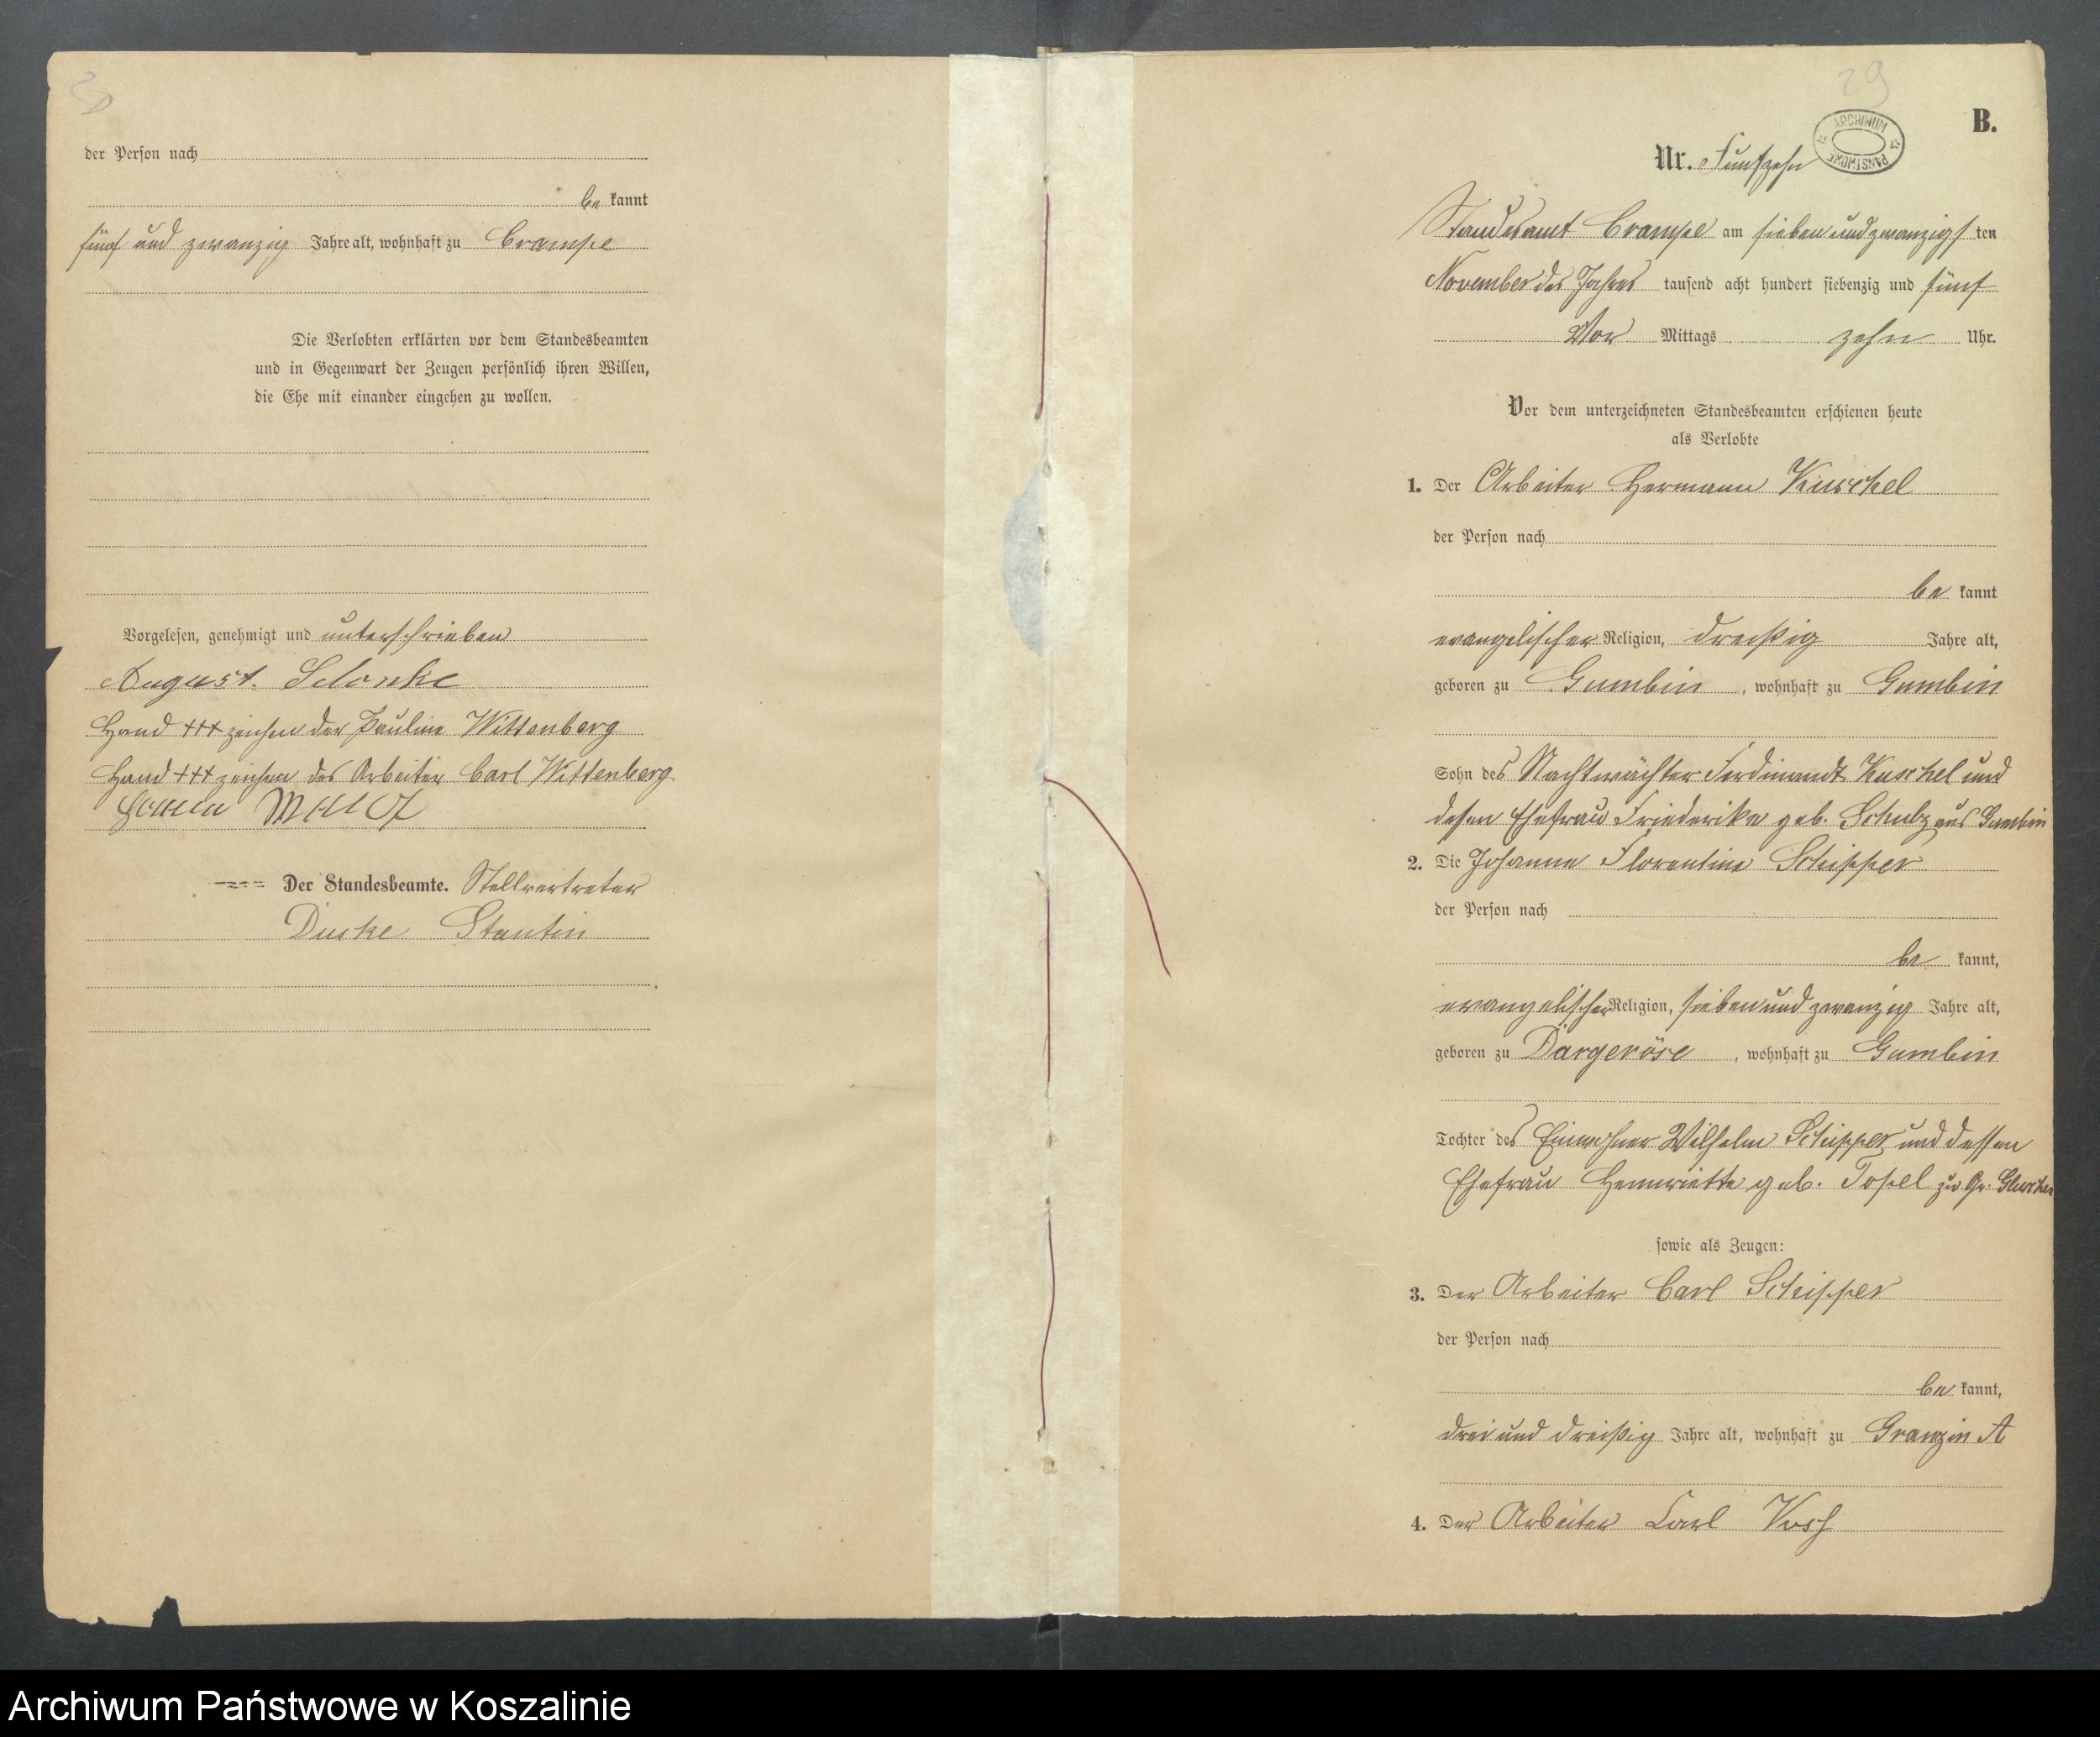 der Person nach
be kannt
fünf und zwanzig Jahre alt, wohnhaft zu Crampe
Die Verlobten erklärten vor dem Standesbeamten
und in Gegenwart der Zeugen persönlich ihren Willen,
die Ehe mit einander eingehen zu wollen.
Vorgelesen, genehmigt und unterschrieben
August Selonke
Hand +++ zeichen der Pauline Wittenberg
Hand +++ zeichen des Arbeiter Carl Wittenberg
Der Standesbeamte. Stellvertreter
Duske Stantin
29
B.
ARCHIWUM PAŃSTWOWE
Nr. Funfzehn
Standesamt Crampe am sieben und zwanzigs ten
November des Jahres tausend acht hundert siebenzig und fünf
Vor Mittags zehn Uhr.
Vor dem unterzeichneten Standesbeamten erschienen heute
als Verlobte
1. Der Arbeiter Hermann Kuschel
der Person nach
be kannt
evangelischer Religion, dreißig Jahre alt,
geboren zu Gumbin, wohnhaft zu Gumbin
Sohn des Nachtwächter Ferdinandt Kuschel und
desen Ehefrau Friederike geb. Schulz aus Gumbin
2. Die Johanne Florentine Schipper
der Person nach
be kannt,
evangelischer Religion, sieben und zwanzig Jahre alt,
geboren zu Dargeröse, wohnhaft zu Gumbin
Tochter des Einwohner Wilhelm Schipper und dessen
Ehefrau Hennriette geb. Topel zu Gr.
sowie als Zeugen:
3. Der Arbeiter Carl Schipper
der Person nach
be kannt,
drei und dreißig Jahre alt, wohnhaft zu Granzin A
4. Der Arbeiter Carl Vosh
Archiwum Państwowe w Koszalinie